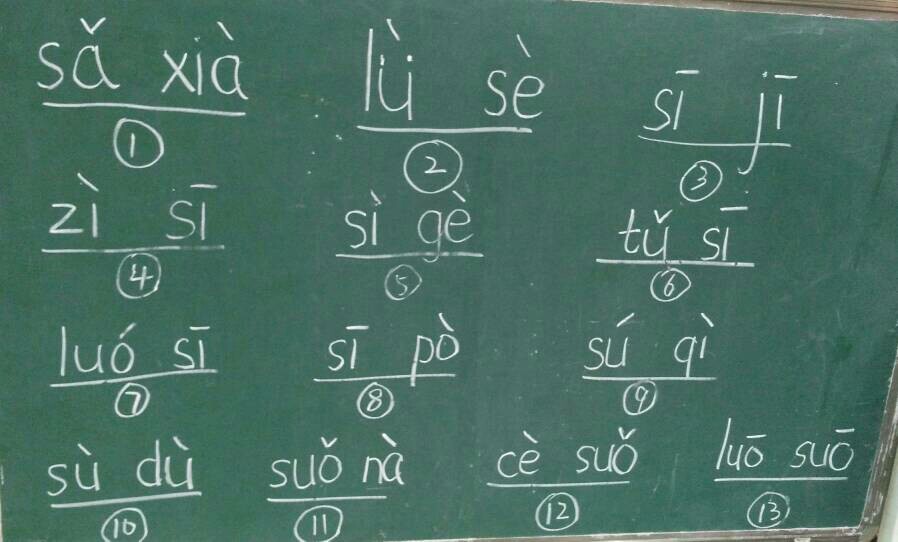 sǎ xià lǜ sè sī jī
① ② ③
zì sī sì gè tǔ sī
④ ⑤ ⑥
luó sī sī pò sú qì
⑦ ⑧ ⑨
sù dù suǒ nà cè suǒ luō suō
⑩ ⑪ ⑫ ⑬